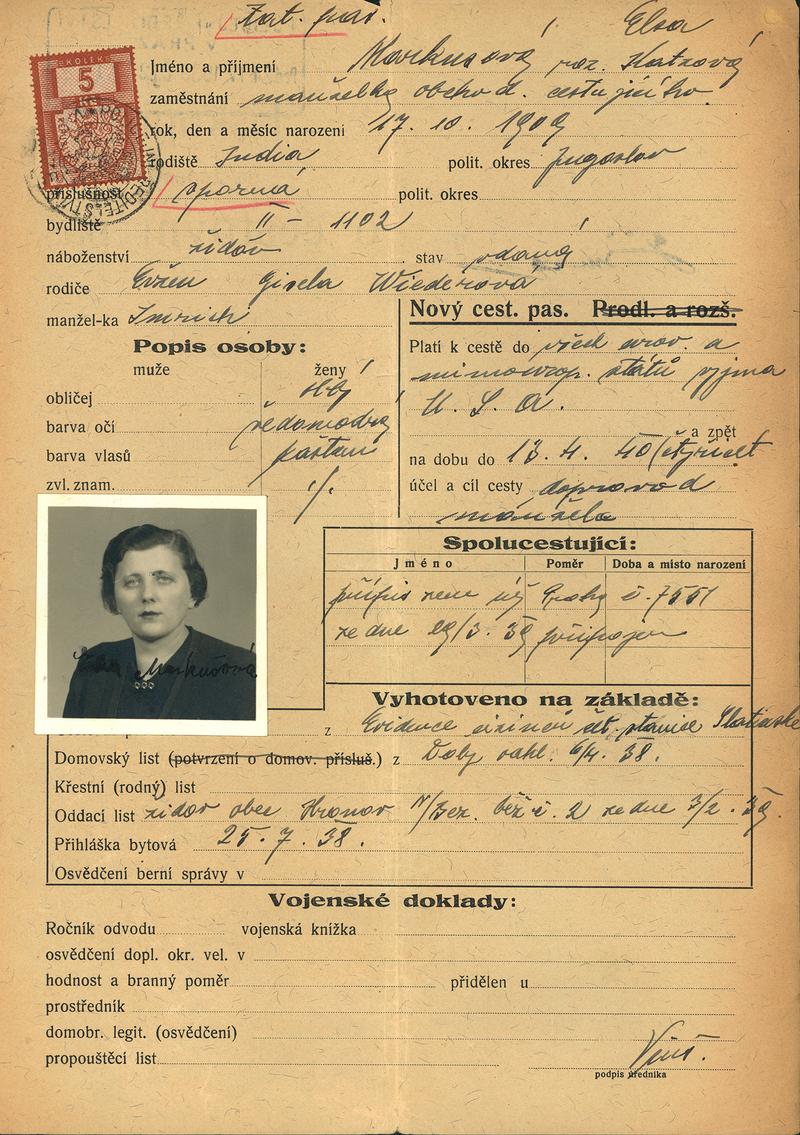 zat. pas.
Elsa
Jméno a příjmení Markusová roz. Katzová
zaměstnání manželka obchod. cestujícího
rok, den a měsíc narození 17. 10. 1909
rodiště India polit. okres Jugoslav
příslušnost sporná polit. okres
bydliště II – 1102
náboženství židov stav vdaná
rodiče Evžen Gisela Wiederova
manžel-ka Imrich
Nový cest. pas. Prodl. a rozš.
Popis osoby:
muže ženy
obličej obl
barva očí šedomodrá
barva vlasů kaštan
zvl. znam. ./.
Platí k cestě do všech evrop. a
mimoevrop. států vyjma
U. S. A.
a zpět
na dobu do 13. 4. 40 (čtyřicet
účel a cíl cesty doprovod
manžela
KOLEK
5
Spolucestující:
Jméno Poměr Doba a místo narození
přípis zem úř Prahy č. 7551
ze dne 29/3. 39 připojen
Elsa Markusová
Vyhotoveno na základě:
z Evidence cizinců čet. stanice Slatinske
Domovský list (potvrzení o domov. přísluš.) z Doby 6/4. 38.
Křestní (rodný) list
Oddací list židov obec Hronov č. 2 ze dne 3/2. 39.
Přihláška bytová 25. 7. 38.
Osvědčení berní správy v
Vojenské doklady:
Ročník odvodu vojenská knížka
osvědčení dopl. okr. vel. v
hodnost a branný poměr přidělen u
prostředník
domobr. legit. (osvědčení)
propouštěcí list
podpis úředníka